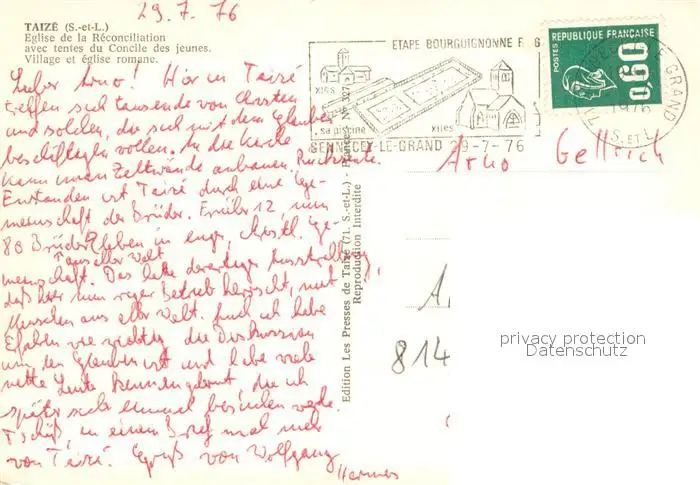 29.7.76
TAIZÉ (S.-et-L.)
Eglise de la Réconciliation
avec tentes du Concile des jeunes.
Village et église romane.
Lieber Arno! Hier in Taizé
treffen sich tausende von Christen
und solchen, die sich mit dem Glauben
beschäftigen wollen. In die Kirche
kann man Zeltwände anbauen.
Entstanden ist Taizé durch eine Ge-
meinschaft der Brüder. Früher 12, nun
80 Brüder leben in enger, christl. Ge-
aus aller Welt
meinschaft. Das hatte derartige Ausstrahlung,
daß hier nun reger Betrieb herrscht, mit
Menschen aus aller Welt. Auch ich habe
erfahren wie wichtig die Diskussion
um den Glauben ist und habe viele
nette Leute kennengelernt, die ich
später sicher einmal besuchen werde.
Tschüß, in einem Brief mal mehr
von Taizé. Gruß von Wolfgang
Hermes
Edition Les Presses de Taizé (71. S.-et-L.) - France - Nº 327
Reproduction Interdite
ETAPE BOURGUIGNONNE R 6
XIES
sa piscine
XIIES
SENNECEY-LE-GRAND 29-7-76
POSTES
REPUBLIQUE FRANÇAISE
0,60
LE GRAND
1976
S. ET L.
Arno Gellrich
A
814
privacy protection
Datenschutz